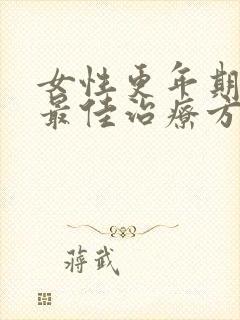 女性更年期
最佳治疗方
蒋武